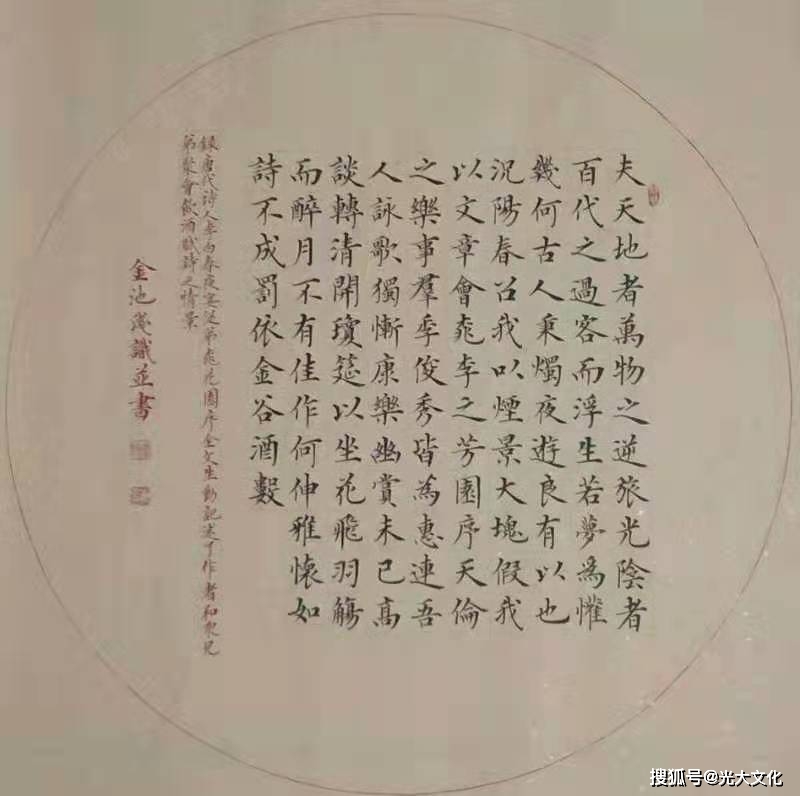 夫天地者萬物之逆旅光陰者
百代之過客而浮生若夢為懽
幾何古人秉燭夜遊良有以也
況陽春召我以煙景大塊假我
以文章會桃李之芳園序天倫
之樂事羣季俊秀皆為惠連吾
人詠歌獨慚康樂幽賞未已高
談轉清開瓊筵以坐花飛羽觴
而醉月不有佳作何伸雅懷如
詩不成罰依金谷酒數
錄唐代詩人李白春夜宴從弟桃花園序全文生動記述了作者和眾兄
弟聚會飲酒賦詩之情景
金池淺識並書
搜狐号@光大文化